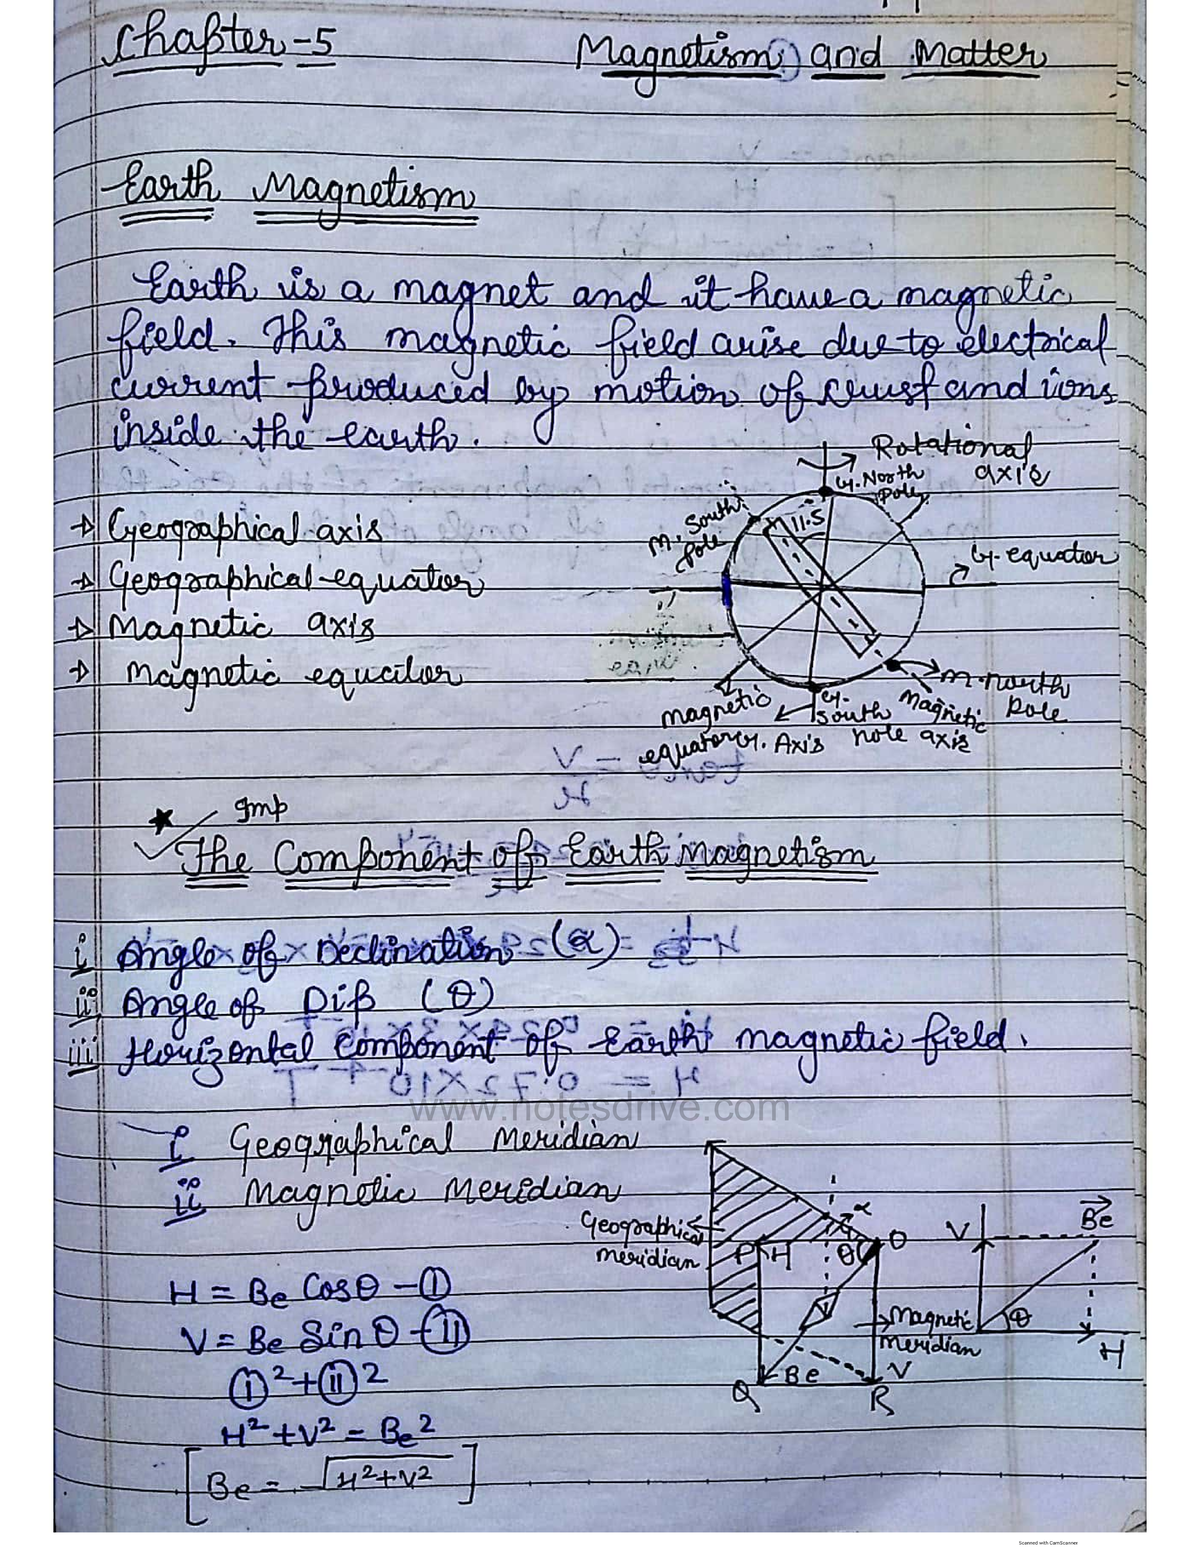 Chapter-5 Magnetism and Matter
Earth Magnetism
Earth is a magnet and it have a magnetic
field. This magnetic field arise due to electrical
current produced by motion of crust and ions
inside the earth.
→ Geographical axis
→ Geographical equator
→ Magnetic axis
→ Magnetic equator
Rotational
axis
G. North
Pole
11.5
M. South
Pole
G. equator
M. north
Pole
Magnetic
axis
G.
South
Pole
G. Axis
Magnetic
equator
Imp
The Component of Earth Magnetism
i Angle of Declination (α)
ii Angle of Dip (θ)
iii Horizontal Component of Earth magnetic field.
www.notesdrive.com
i Geographical Meridian
ii Magnetic Meridian
Geographical
meridian
α
P H θ O
Magnetic
Meridian
Be V
Q R
V Be
θ
H
H = Be Cosθ - (I)
V = Be Sinθ - (II)
(i)² + (ii)²
H² + V² = Be²
[Be = √H²+V²]
Scanned with CamScanner